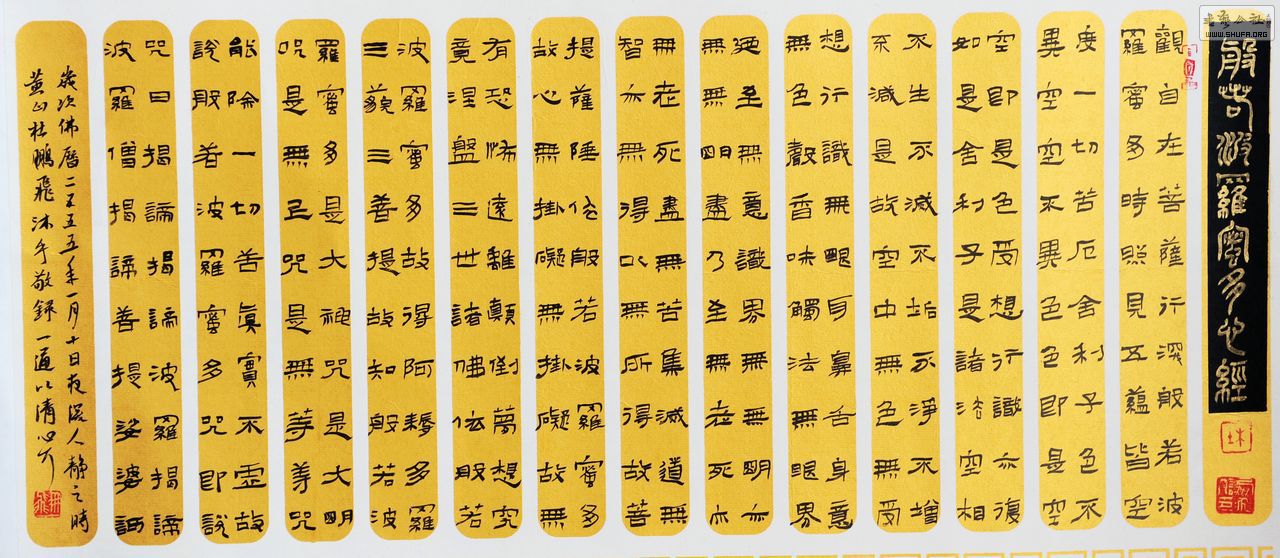 般若波羅蜜多心經
觀自在菩薩行深般若波
羅蜜多時照見五蘊皆空
度一切苦厄舍利子色不
異空空不異色色即是空
空即是色受想行識亦復
如是舍利子是諸法空相
不生不滅不垢不淨不增
不減是故空中無色無受
想行識無眼耳鼻舌身意
無色聲香味觸法無眼界
乃至無意識界無無明亦
無無明盡乃至無老死亦
無老死盡無苦集滅道無
智亦無得以無所得故菩
提薩埵依般若波羅蜜多
故心無掛礙無掛礙故無
有恐怖遠離顛倒夢想究
竟涅盤三世諸佛依般若
波羅蜜多故得阿耨多羅
三藐三菩提故知般若波
羅蜜多是大神咒是大明
咒是無上咒是無等等咒
能除一切苦真實不虛故
說般若波羅蜜多咒即說
咒曰揭諦揭諦波羅揭諦
波羅僧揭諦菩提娑婆訶
歲次佛曆二五五五年一月十日夜深人静之時
黃山杜鵬飛沐手敬錄一通以清心
WWW.SHUFA.ORG